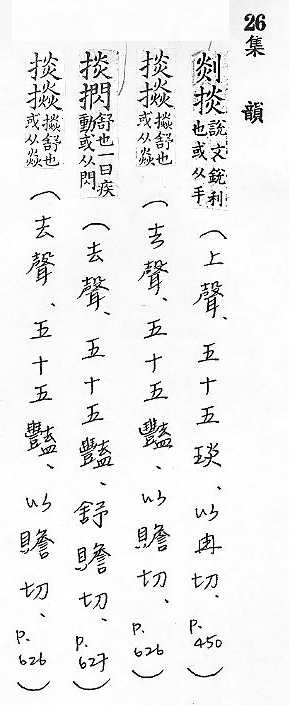 26 集韻
剡掞 說文銳利也或从手 (上聲、五十五琰、以冉切、P.450)
掞㷋 掞舒也或从焱 (去聲、五十五豔、以贍切、P.626)
掞㨛 舒也一曰疾動或从閃 (去聲、五十五豔、舒贍切、P.627)
掞 掞舒也或从焱 (去聲、五十五豔、以贍切、P.626)